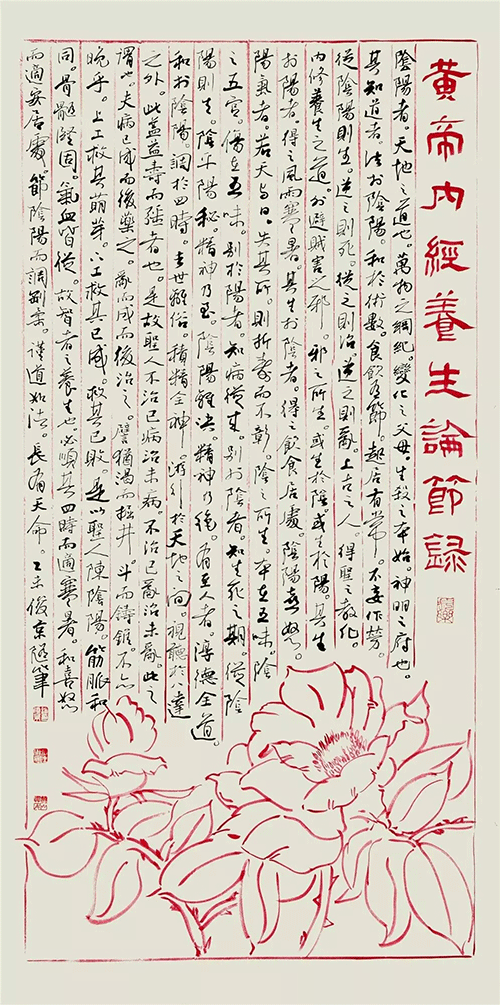 黃帝內經養生論節錄
陰陽者。天地之道也。萬物之綱紀。變化之父母。生殺之本始。神明之府也。
其知道者。法於陰陽。和於術數。食飲有節。起居有常。不妄作勞。
從陰陽則生。逆之則死。從之則治。逆之則亂。上古之人。得聖之教化。
內修養生之道。外避賊害之邪。邪之所生。或生於陰。或生於陽。其生
於陽者。得之風雨寒暑。其生於陰者。得之飲食居處。陰陽喜怒。
陽氣者。若天與日。失其所。則折壽而不彰。陰之所生。本在五味。陰
之五宮。傷在五味。別於陽者。知病從來。別於陰者。知生死之期。從陰
陽則生。陰平陽秘。精神乃。陰陽離決。精神乃絕。有至人者。淳德全道。
和於陰陽。調於四時。去世離俗。積精全神。游行於天地之間。視聽於八達
之外。此蓋益壽而強者也。是故聖人不治已病治未病。不治已亂治未亂。此之
謂也。夫病已成而後藥之。亂而成而後治之。譬猶渴而掘井。斗而鑄錐。不亦
晚乎。上工救其萌芽。下工救其已成。救其已敗。是以聖人陳陰陽。筋脈和
同。骨髓堅固。氣血皆從。故智者之養生也必順其四時而適寒暑。和喜怒
而適安居處。節陰陽而調剛柔。謹道如法。長有天命。乙未俊京隨筆